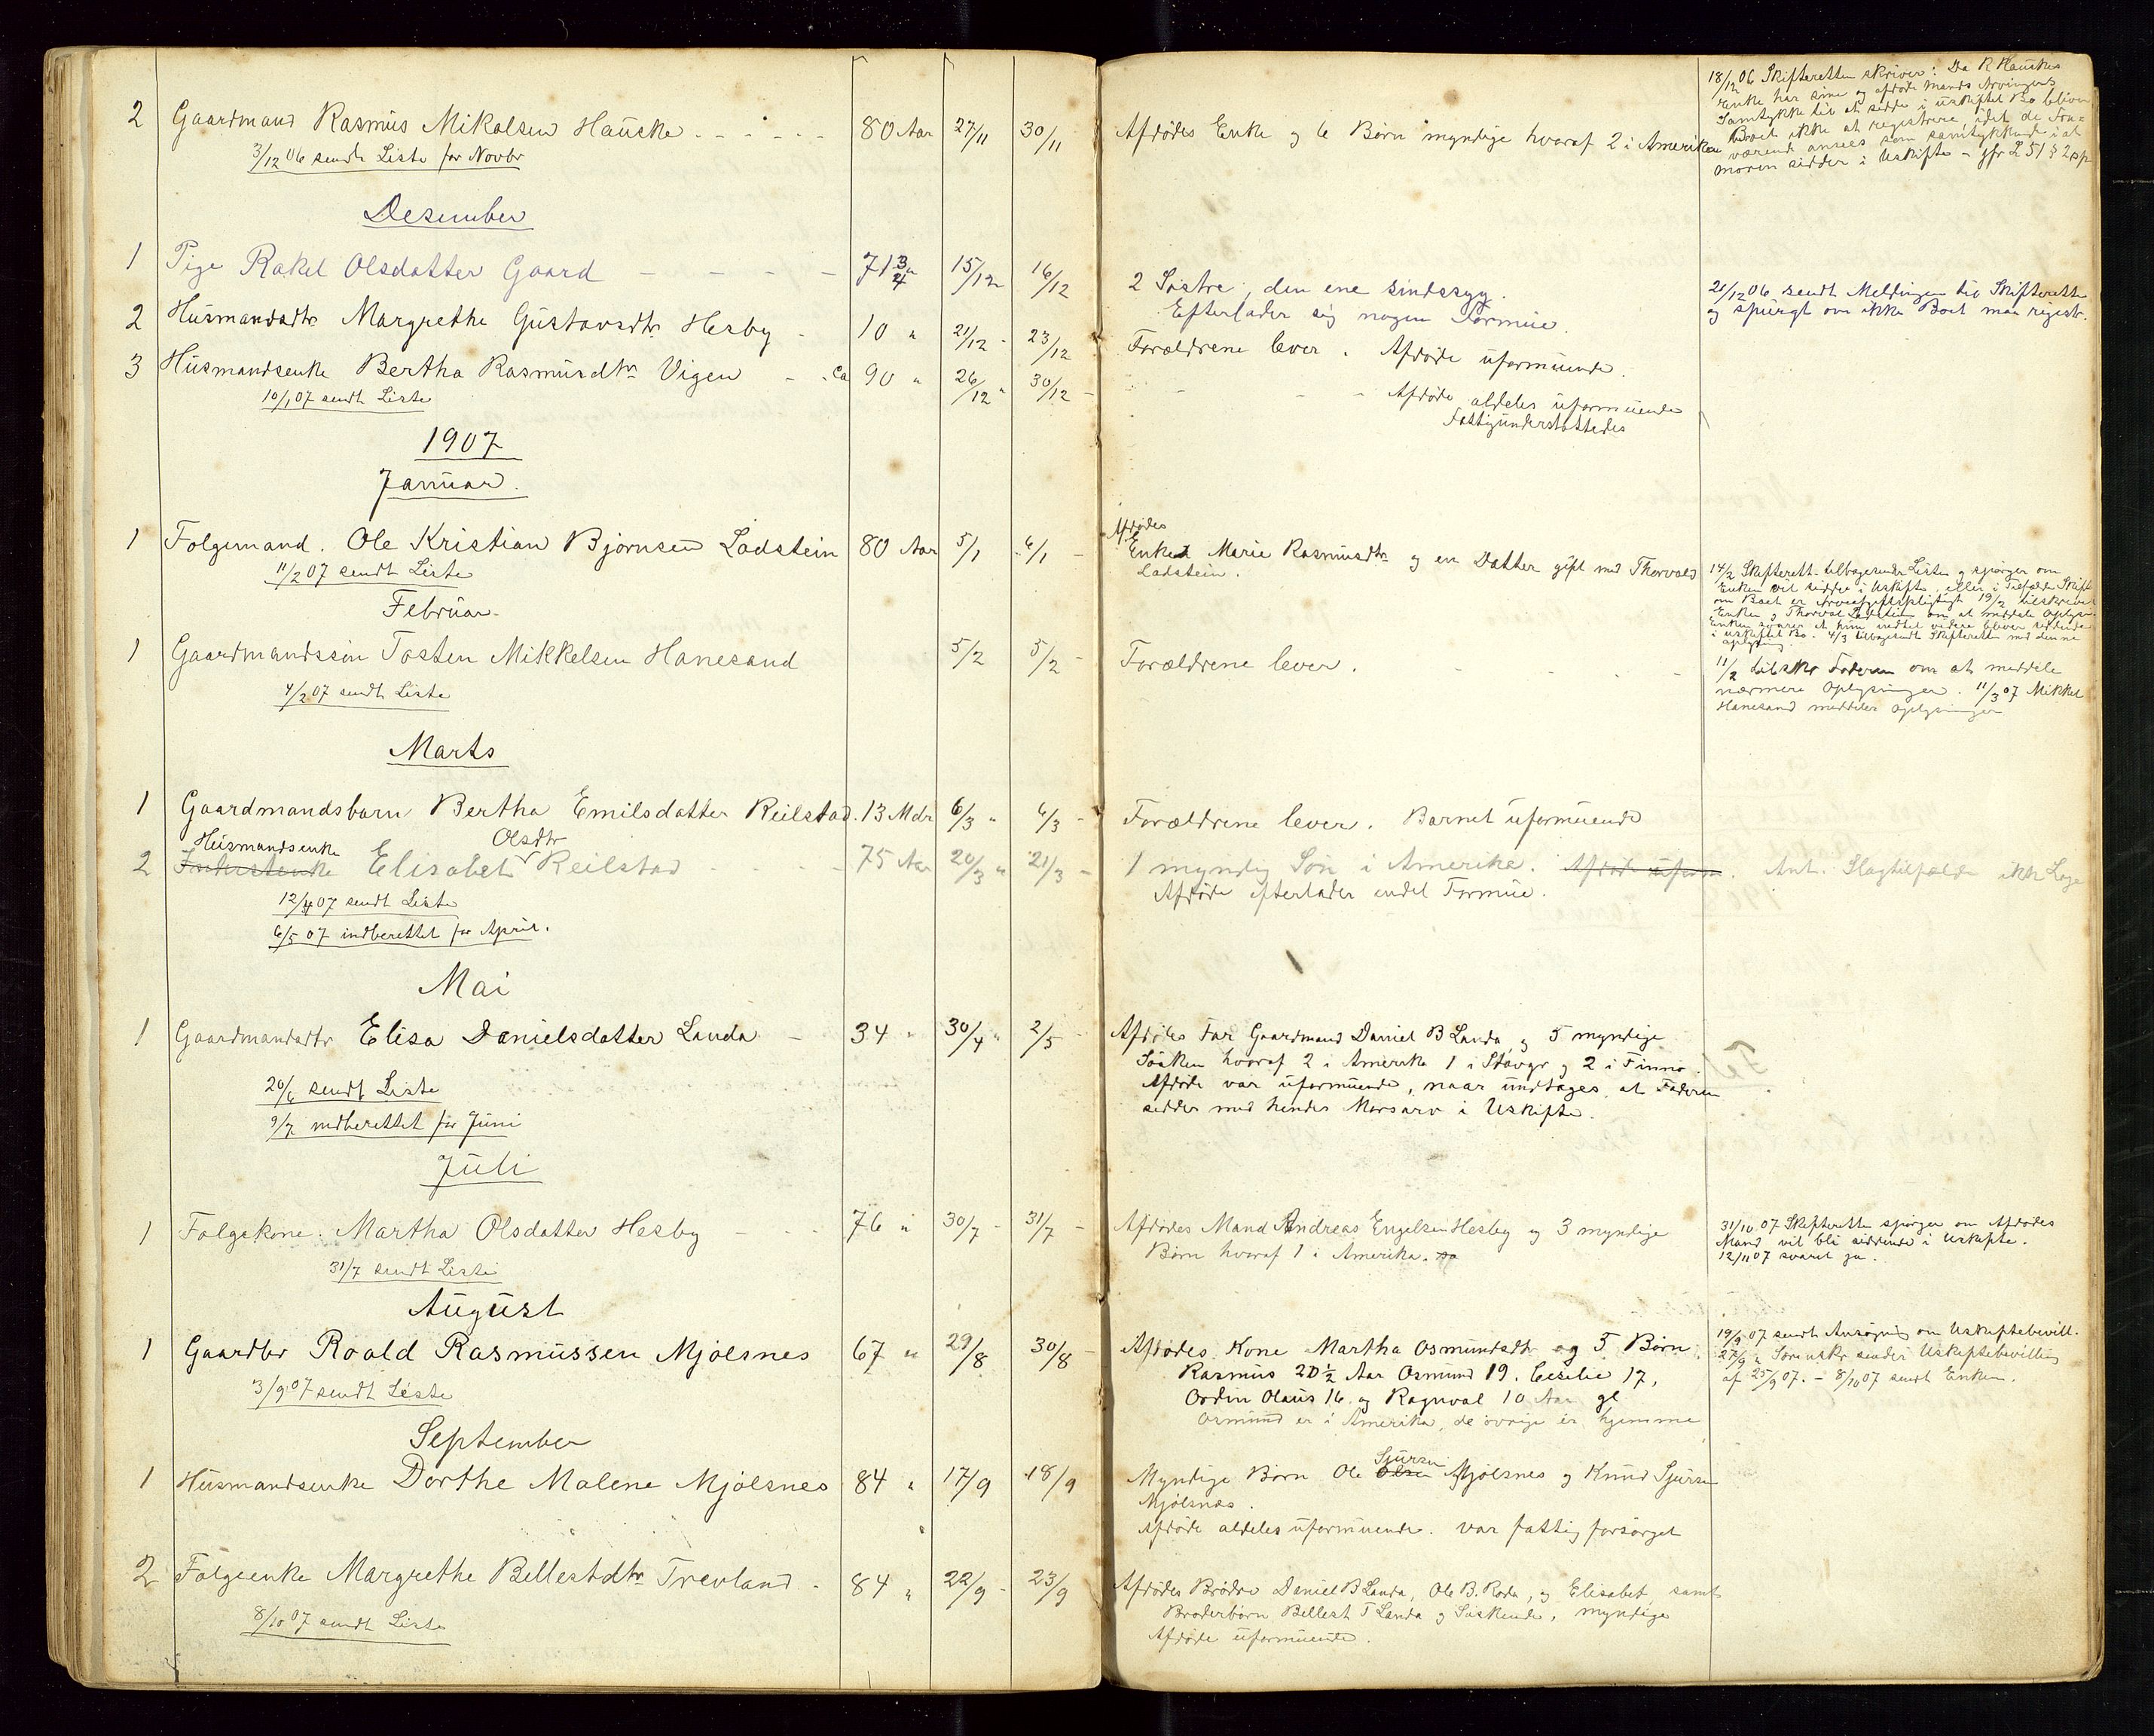 2 Gaardmand Rasmus Mikalsen Hauske 80 Aar 27/11 30/11 Afdødes Enke og 6 Børn myndige hvoraf 2 i Amerika
3/12 06 sendt Liste for Novbr
18/12 06 Skifteretten skriver: Da R Hauskes
Enke har sine og afdøde Mands Arvingers
Samtykke til at sidde i uskiftet Bo bliver
Boet ikke at registrere, idet de
værende ansees som samtykkende i at
moren sidder i Uskifte - jfr L 51 § 2
Desember
1 Pige Rakel Olsdatter Gaard 71 3/4 " 15/12 16/12 2 Søstre, den ene sindssyg.
Efterlader sig nogen Formue.
21/12 06 sendt Meldingen til Skifteretten
og spurgt om ikke Boet maa registr.
2 Husmandsdtr Margrethe Gustavsdtr Hesby 10 " 21/12 23/12 Forældrene lever. Afdøde uformuende.
3 Husmandsenke Bertha Rasmusdtr Vigen ca 90 " 26/12 30/12 Afdøde aldeles uformuende
Fattigunderstøttedes
10/1 07 sendt Liste
1907
Januar.
1 Folgemand. Ole Kristian Bjørnsen Ladstein 80 Aar 5/1 6/1 Afdødes
Enke Marie Rasmusdtr og en Datter gift med Thorvald
Ladstein.
11/2 07 sendt Liste
14/2 Skifterett. tilbagesender Listen og spørger om
Enken vil sidde i Uskifte, eller i Tilfælde Skift
om Boet er Arveafgiftspligtigt 19/2 tilskrevet
Enken og Thorval Ladstein om at meddele Oplysn.
Enken svarer at hun indtil videre bliver siddende
i uskiftet Bo. 4/3 tilbagesendt Skifteretten med denne
Oplysning.
Februar.
1 Gaardmandssøn Tosten Mikkelsen Hanesand 5/2 5/2 Forældrene lever.
4/2 07 sendt Liste
11/2 tilskr Faderen om at meddele
nærmere Oplysninger. 11/3 07 Mikkel
Hanesand meddeler Oplysninger
Marts
1 Gaardmandsbarn Bertha Emilsdatter Reilstad. 13 Mdr 6/3 " 6/3 Forældrene lever. Barnet uformuende
Husmandsenke Olsdtr
2 Elisabet Reilstad 75 Aar 20/3 " 21/3 1 myndig Søn i Amerika. Afdøde uform. Ant. Slagtilfælde ikke Læge
Afdøde efterlader endel Formue.
12/4 07 sendt Liste
6/5 07 indberettet for April.
Mai
1 Gaardmandsdtr Elisa Danielsdatter Landa 34 " 30/4 " 2/5 Afdødes Far Gaardmand Daniel B Landa og 5 myndige
Søsken hvoraf 2 i Amerika 1 i Stavgr og 2 i Finnø.
Afdøde var uformuende, naar undtages, at Faderen
sidder med hendes Morsarv i Uskifte.
20/6 sendt Liste
9/7 indberettet for Juni
Juli
1 Folgekone. Martha Olsdatter Hesby 76 " 30/7 31/7 Afdødes Mand Andreas Engelsen Hesby og 3 myndige
Børn hvoraf 1 i Amerika.
31/7 sendt Liste
31/10 07 Skifteretten spørger om Afdødes
Mand vil bli siddende i Uskifte.
12/11 07 svaret ja.
August
1 Gaardbr Roald Rasmussen Mjølsnes 67 " 29/8 30/8 Afdødes Kone Martha Osmundsdtr og 5 Børn
Rasmus 20 1/2 Aar Osmund 19. Cecelie 17,
Ordin Olaus 16. og Ragnval 10 Aar gl
Osmund er i Amerika, de øvrige er hjemme
3/9 07 sendt Liste
19/9 07 sendt Ansøgning om Uskiftebevill.
27/9 " Sorenskr sender Uskiftebevilling
af 25/9 07. - 8/10 07 sendt Enken.
September
1 Husmandsenke Dorthe Malene Mjølsnes 84 " 17/9 18/9 Myndige Børn Ole Olsen Sjursen Mjølsnes og Knud Sjursen
Mjølsnes.
Afdøde aldeles uformuende. var fattig forsørget
2 Folgeenke Margrethe Bellestdtr Trevland 84 " 22/9 23/9 Afdødes Brødre Daniel B Landa, Ole B. Roda, og Elisabet samt
Broderbørn Bellest T Landa og Søskende, myndige
Afdøde uformuende.
8/10 07 sendt Liste